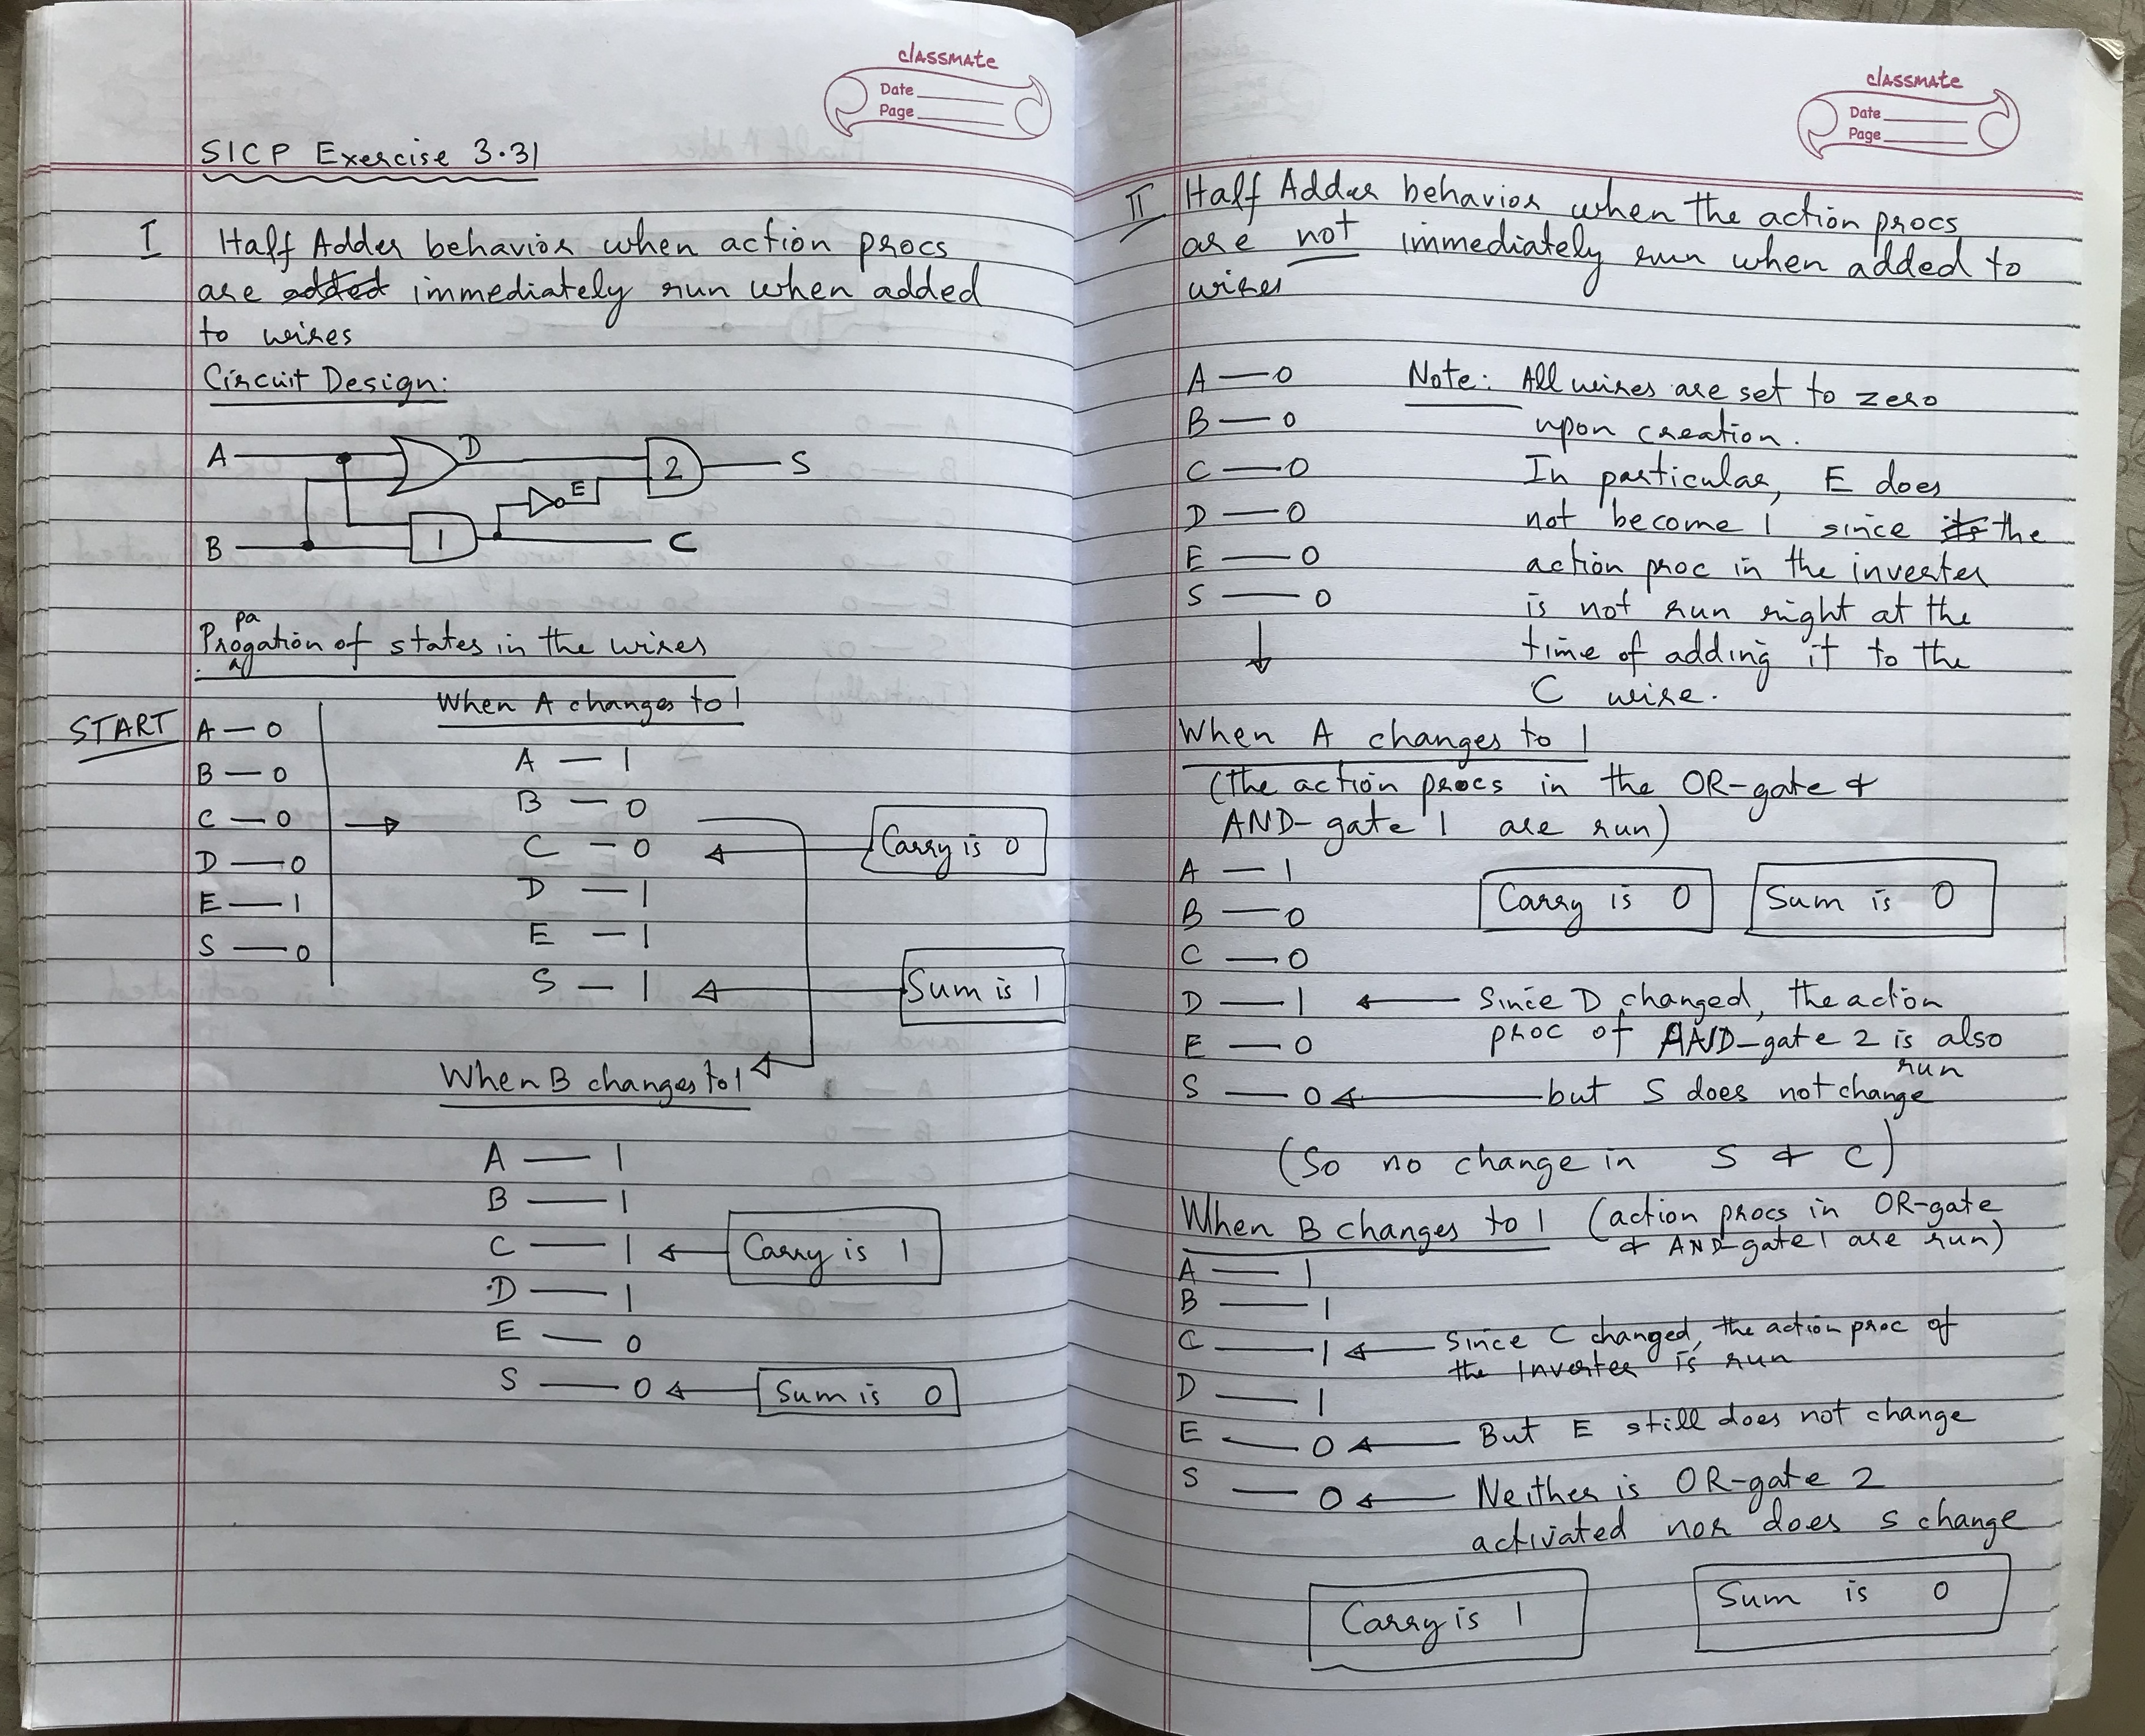 classmate
Date
Page
SICP Exercise 3.31
I Half Adder behavior when action procs
are added immediately run when added
to wires
Circuit Design:
A D 2 S
E
B 1 C
pa
Progation of states in the wires
START
A — 0
B — 0
C — 0
D — 0
E — 1
S — 0
When A changes to 1
A — 1
B — 0
C — 0 Carry is 0
D — 1
E — 1
S — 1 Sum is 1
When B changes to 1
A — 1
B — 1
C — 1 Carry is 1
D — 1
E — 0
S — 0 Sum is 0
classmate
Date
Page
II Half Adder behavior when the action procs
are not immediately run when added to
wires
A — 0 Note: All wires are set to zero
B — 0 upon creation.
C — 0 In particular, E does
D — 0 not become 1 since its the
E — 0 action proc in the inverter
S — 0 is not run right at the
time of adding it to the
C wire.
When A changes to 1
(the action procs in the OR-gate &
AND-gate 1 are run)
A — 1 Carry is 0 Sum is 0
B — 0
C — 0
D — 1 Since D changed, the action
E — 0 proc of AND-gate 2 is also
run
S — 0 but S does not change
(So no change in S & C)
When B changes to 1 (action procs in OR-gate
& AND-gate 1 are run)
A — 1
B — 1
C — 1 Since C changed, the action proc of
the Inverter is run
D — 1
E — 0 But E still does not change
S — 0 Neither is OR-gate 2
activated nor does S change
Carry is 1 Sum is 0